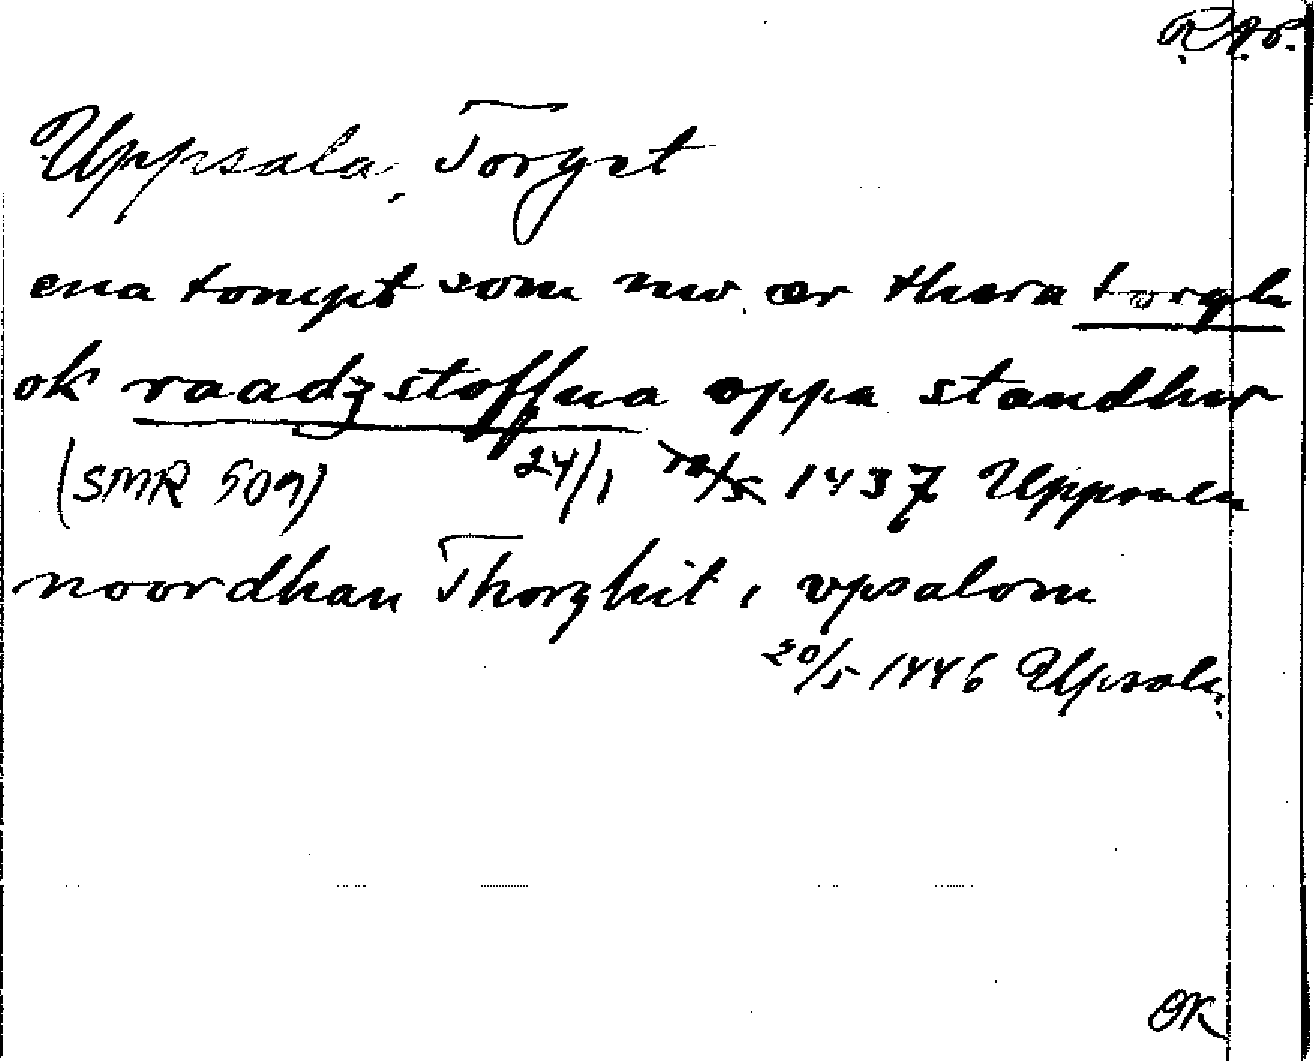 R.A.P.
Uppsala, Torget
ena tompt som nw ær thera torgh
ok raadzstoffua oppa standher
(SMR 509) 24/1 1437 Uppsala
noordhan Thorghit i vpsalom
20/5 1446 Upsala
OK